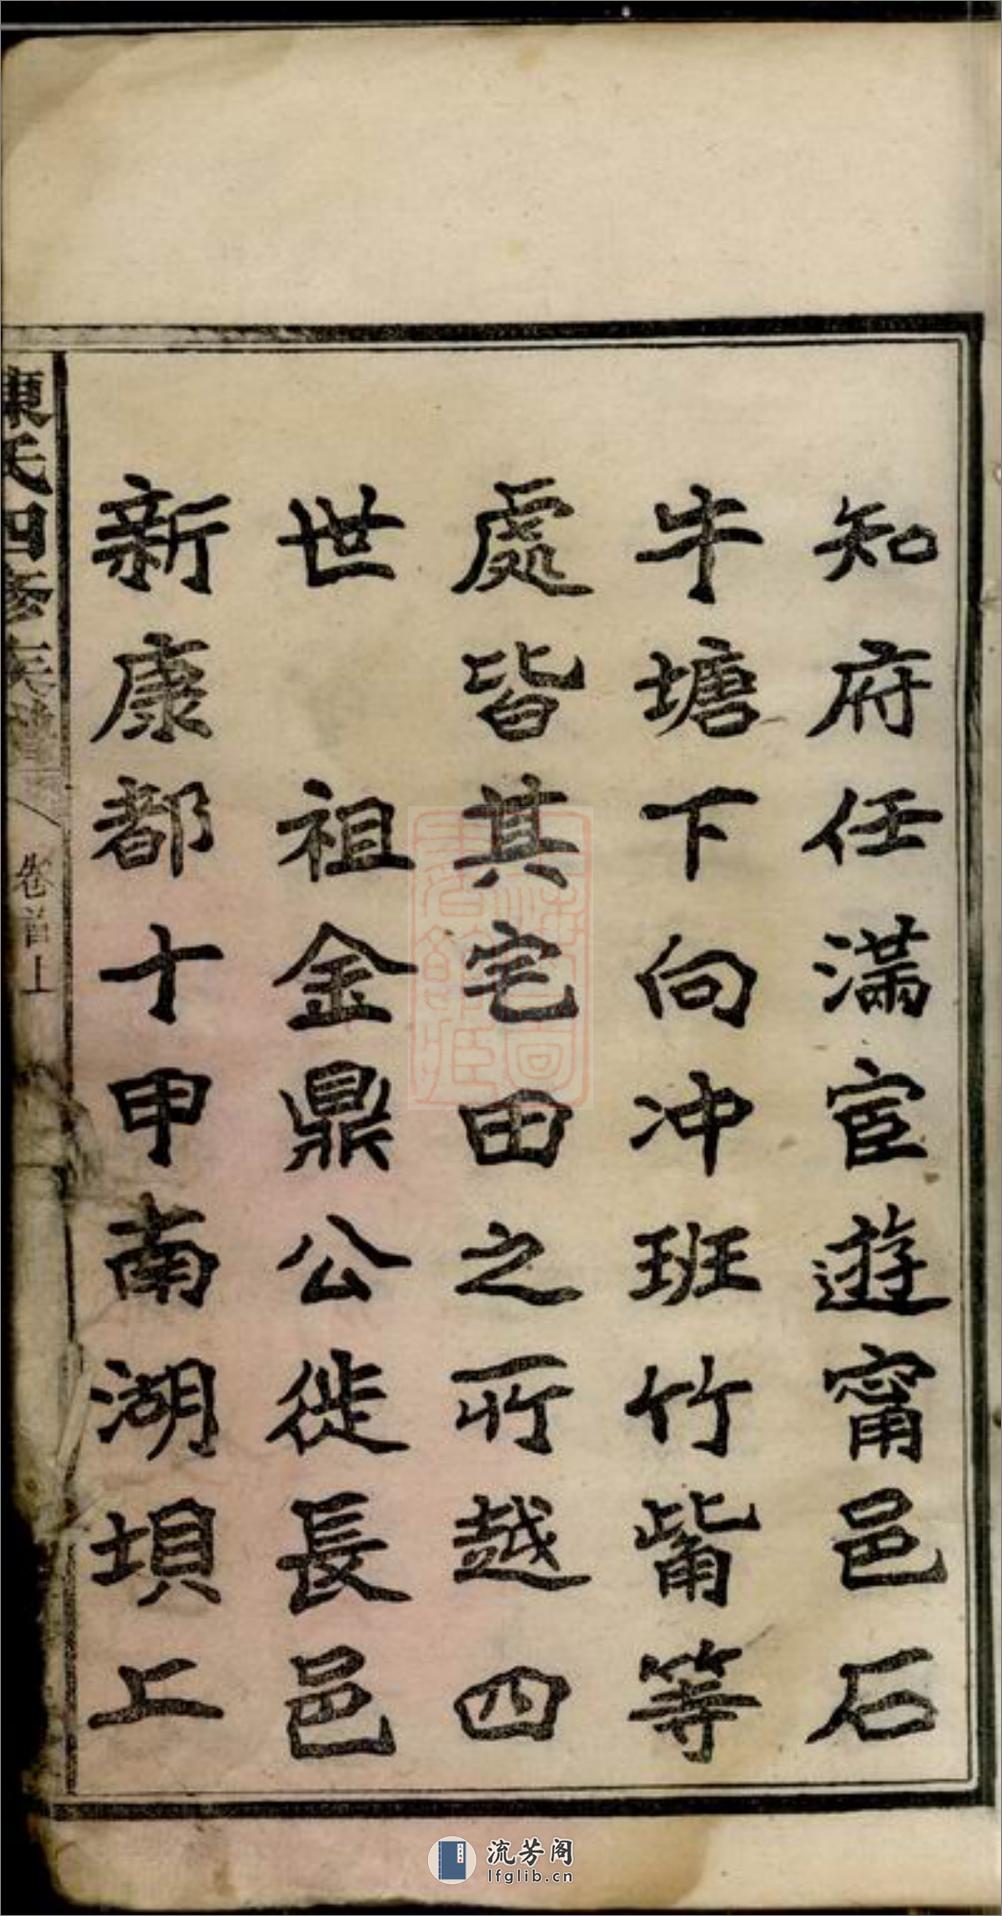 知府任滿宦遊甯邑石
牛塘下向冲班竹觜等
處皆其宅田之所越四
世 祖金鼎公徙長邑
新康都十甲南湖垻上
氏四修
卷首上
流芳阁
lfglib.cn